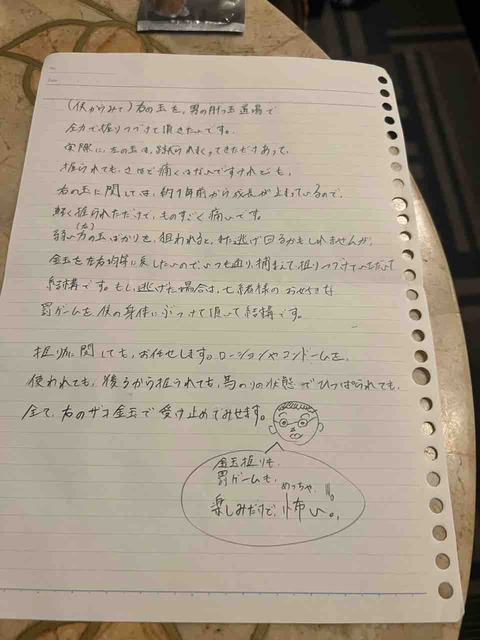 (僕からみて)右の玉を、男の肝っ玉道場で
全力で握りつづけて頂きたいです。
実際に、左の玉は、られまくってきただけあって、
握られても、さほど痛くはないですけれども、
右の玉に関しては、約1年前から成長が止まっているので、
軽く握られただけで、ものすごく痛いです。
弱い(右)の玉ばかりを、狙われると、逃げ回るかもしれませんが、
金玉を左右均等に戻したいので、いつも通り、捕まえて、握りつづけていただいて
結構です。もし、逃げた場合は、七者様のお好きな
罰ゲームを、僕の身体にぶつけて頂いて結構です。
握り方に関しても、お任せします。ローションやコンドームを、
使われても、後ろから握られても、馬のりの状態でひっぱられても、
全て、右のザコ金玉で受け止めてみせます。
金玉握りも、
罰ゲームも、めっちゃ
楽しみだけど、怖い。